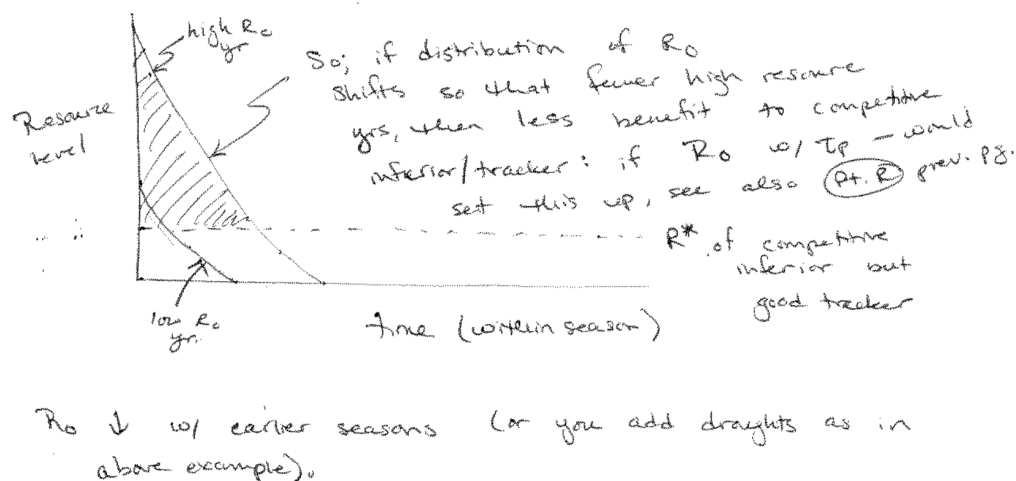 high Ro
yr
So; if distribution of Ro
shifts so that fewer high resource
yrs, then less benefit to competitive
inferior/tracker: if Ro w/ τp – would
set this up, see also Pt. R prev. pg.
Resource
level
R* of competitive
inferior but
good tracker
low Ro
yr.
time (within season)
Ro ↓ w/ earlier seasons (or you add draughts as in
above example).